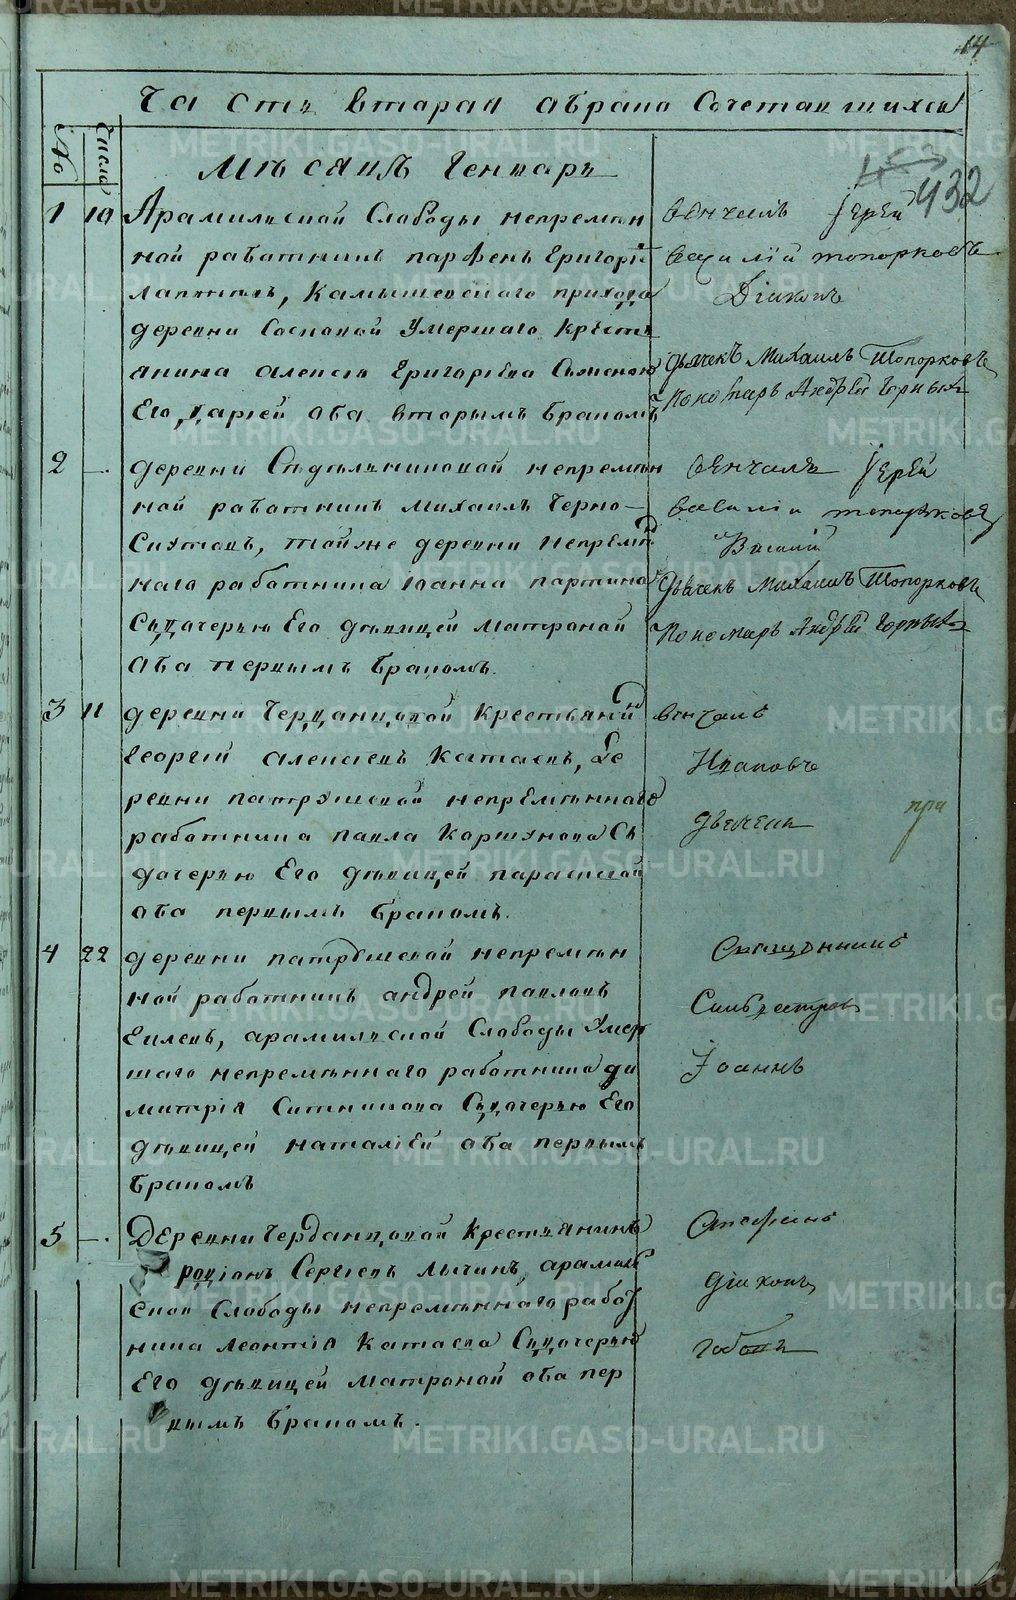 14
Часть вторая обрано Сочетавшихся
№
Число
Мѣсяцъ Генварь
432
1 10 Арамильской Слободы непремѣн
ной работникъ парфенъ Григорiевъ
Лаптевъ, Камышевскаго прихода
деревни Сосновой Умершаго Кресть
янина Алексiя Григорiева Съженою
Его дарiей Оба вторымъ бракомъ
венчалъ Iерей
Василiй топорковъ
Дiаконъ
Дьячекъ Михаилъ Топорковъ
Пономарь Андрей Горныхъ
2 —. деревни Седельниковой непремѣн
ной работникъ михаилъ Черно—
Скутовъ, тойже деревни непремѣн
наго работника Iоанна
Съдочерью Его дѣвицей матроной
Оба первымъ бракомъ.
венчалъ Iерей
Василiй топорковъ
Дьячекъ Михаилъ Топорковъ
Пономарь Андрей Горныхъ
3 11 деревни Черданцовой Крестьянинъ
Георгiй алексiевъ Катаевъ, Де
ревни патрушевой непремѣннаго
работника павла Коршунова Съ
дочерью Его дѣвицей параскевой
оба первымъ бракомъ.
венчалъ
Ивановъ
дьячекъ
при
4 22 деревни патрушевой непремѣн
ной работникъ андрей павловъ
арамильской Слободы Умер
шаго непремѣннаго работника ди
митрiя Ситникова Съдочерью Его
дѣвицей наталiей оба первымъ
бракомъ
Священникъ
Силвестровъ
Iоаннъ
5 —. Деревни Черданцовой Крестьянинъ
родiонъ Сергiевъ Лычинъ, арамиль
ской Слободы непремѣннаго работ
ника леонтiя Катаева Съдочерью
Его дѣвицей матроной оба пер
вымъ бракомъ.
Стефанъ
дiаконъ
METRIKI.GASO-URAL.RU